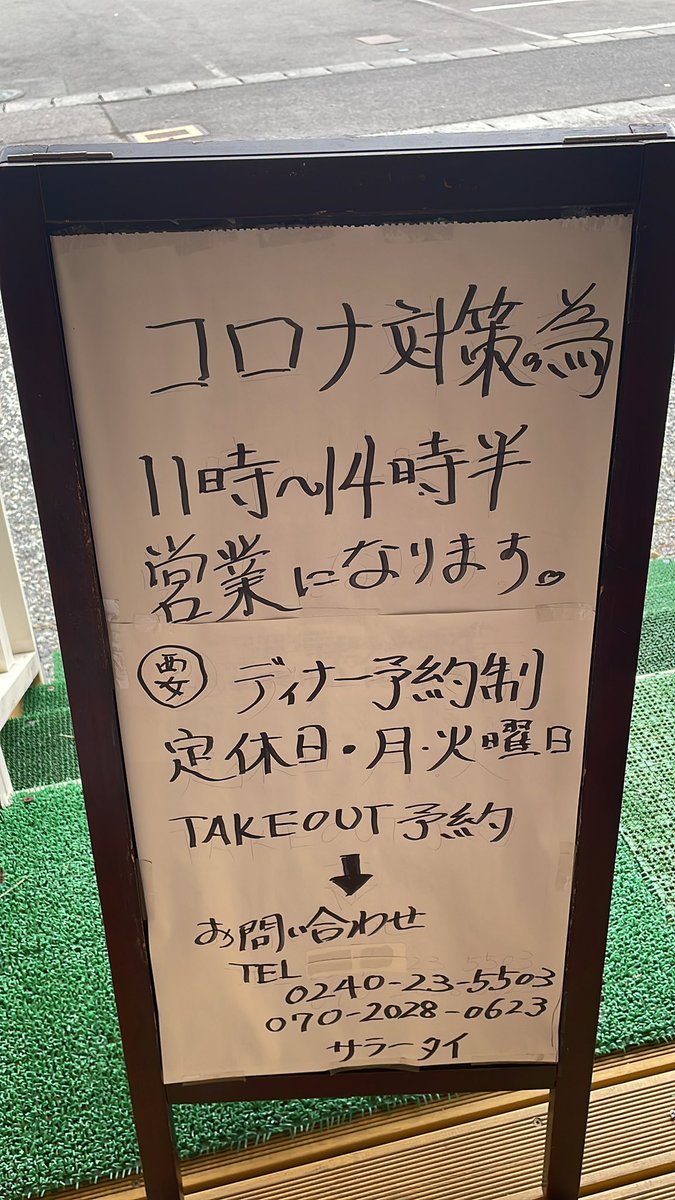 コロナ対策の為
11時〜14時半
営業になります。
要 ディナー予約制
定休日・月・火曜日
TAKEOUT予約
お問い合わせ
TEL
0240-23-5503
070-2028-0623
サラータイ